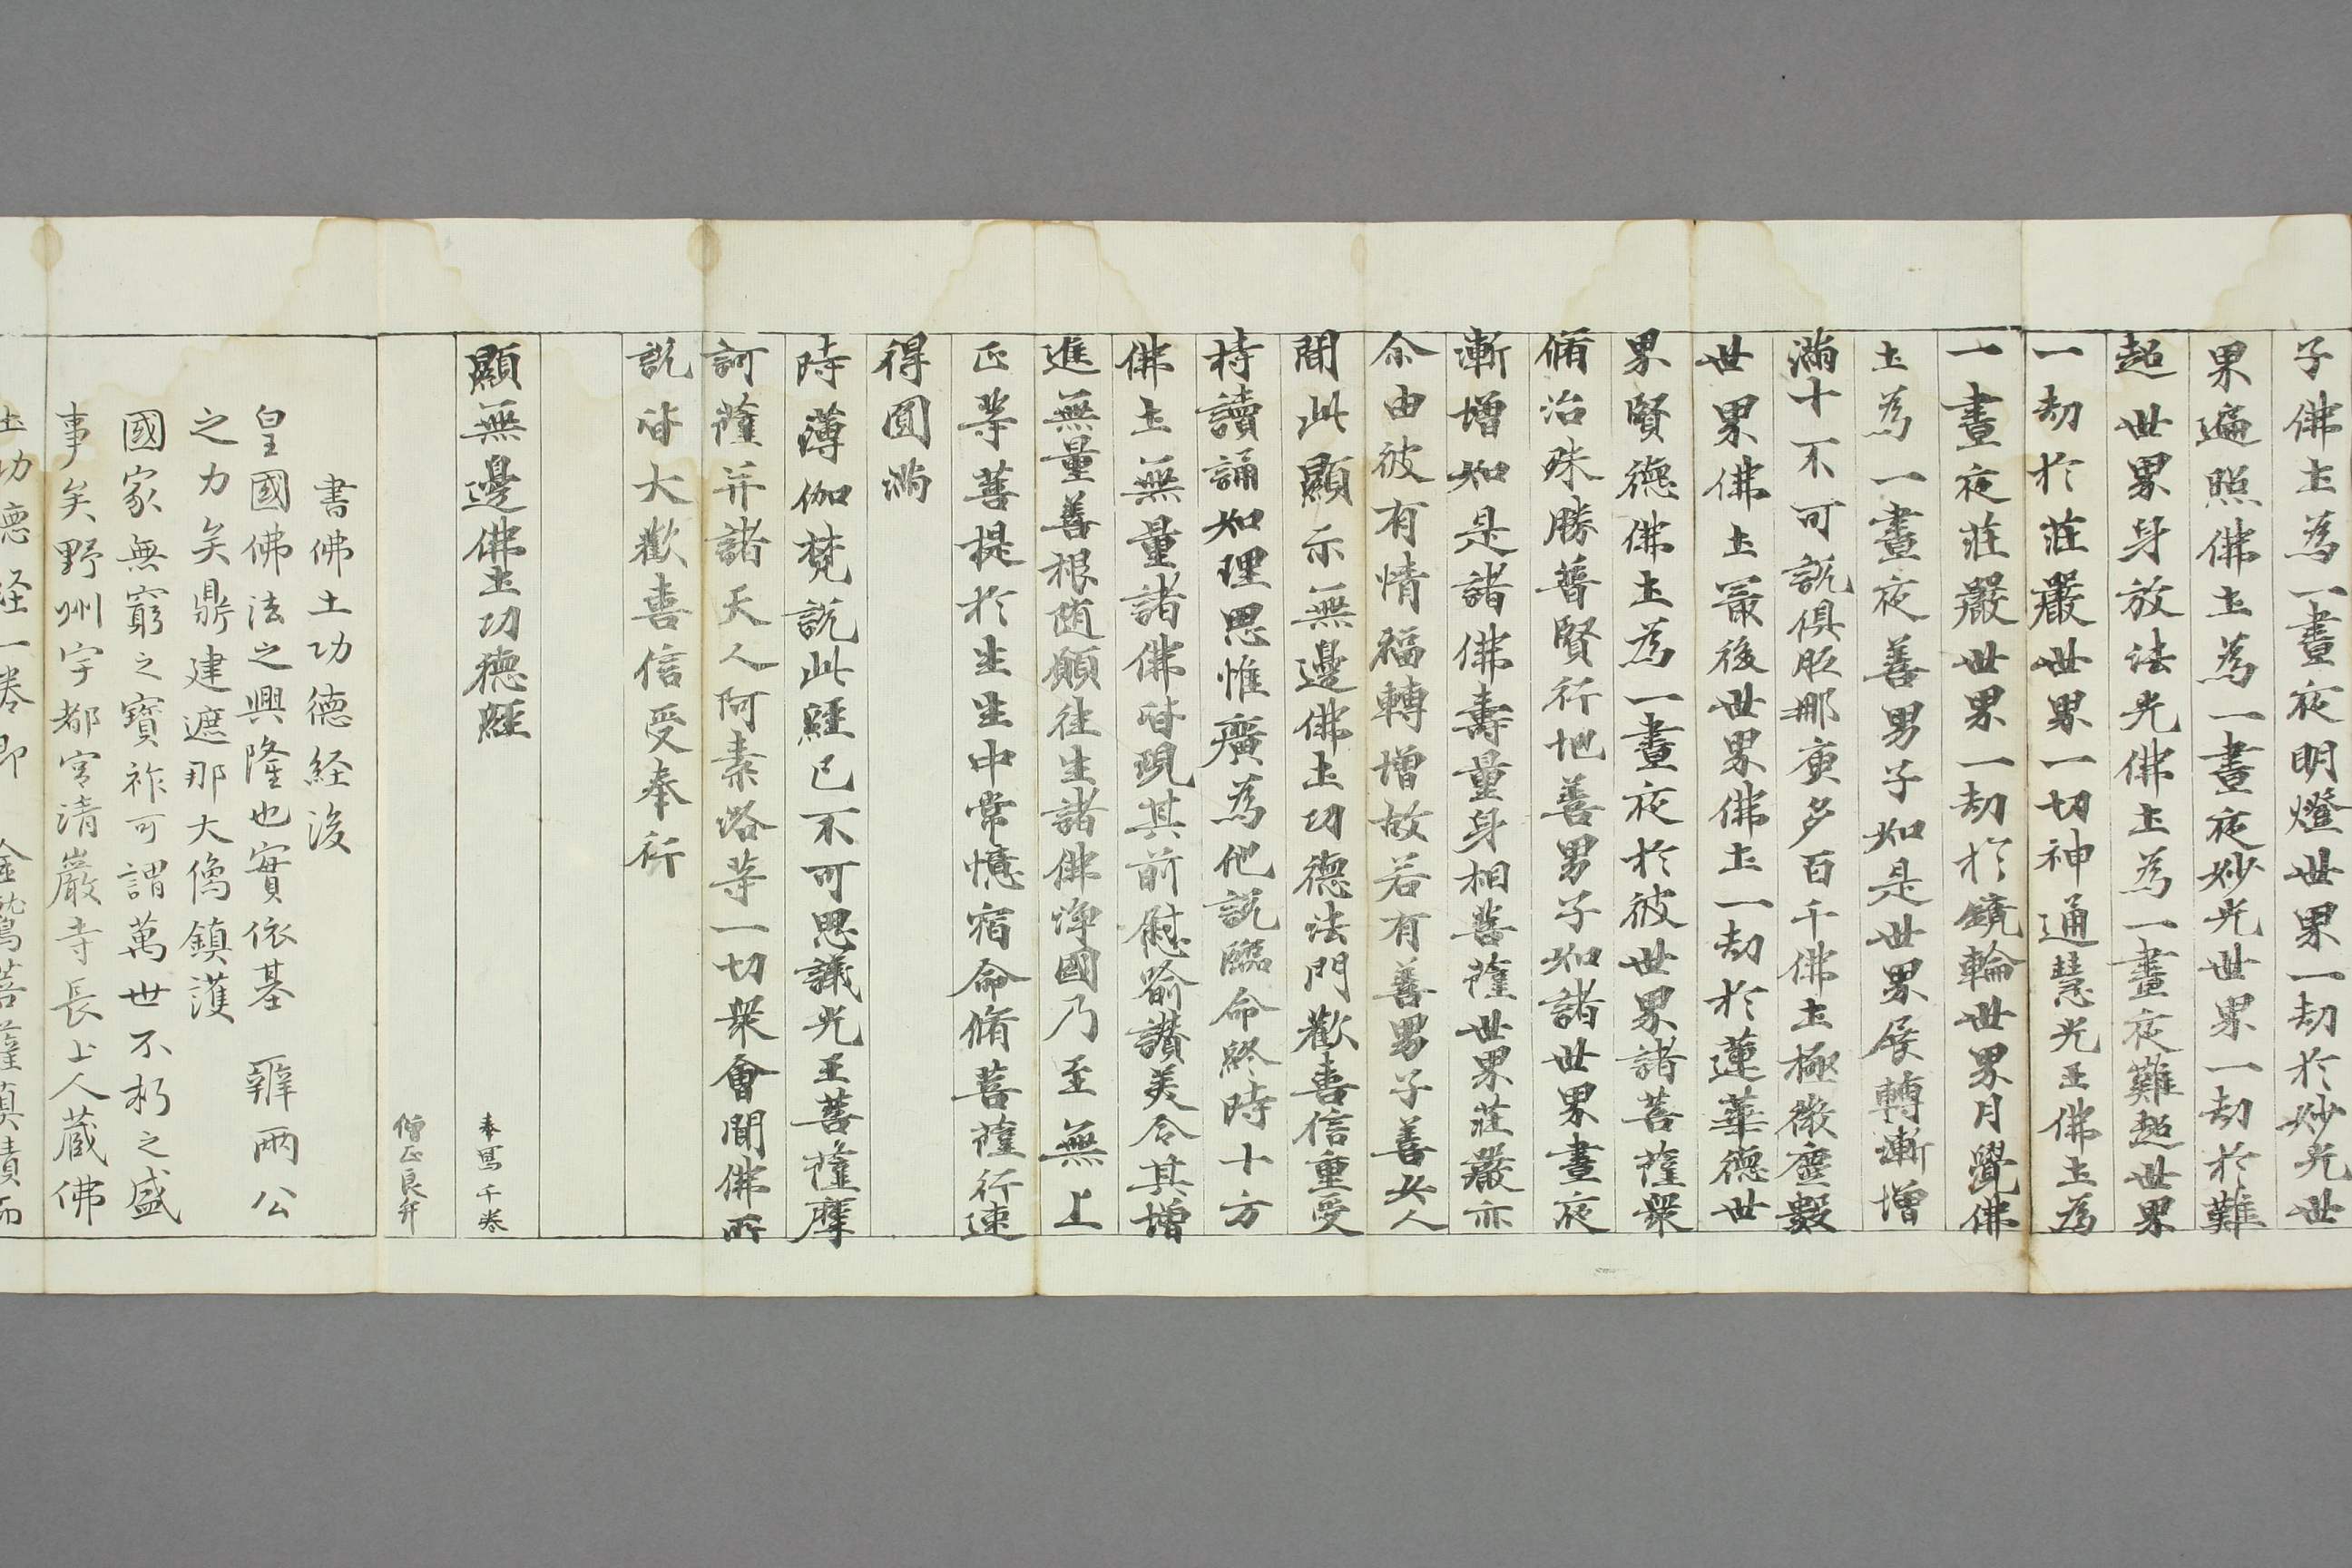 子佛土為一晝夜明燈世界一劫於妙光世
界遍照佛土為一晝夜妙光世界一劫於難
超世界身放法光佛土為一晝夜難超世界
一劫於莊嚴世界一切神通慧光王佛土為
一晝夜莊嚴世界一劫於鏡輪世界月覺佛
土為一晝夜善男子如是世界展轉漸增
滿十不可說俱胝那庾多百千佛土極微塵數
世界佛土最後世界佛土一劫於蓮華德世
界賢德佛土為一晝夜於彼世界諸菩薩眾
脩治殊勝普賢行地善男子如諸世界晝夜
漸增如是諸佛壽量身相菩薩世界莊嚴亦
尒由彼有情福轉增故若有善男子善女人
聞此顯示無邊佛土功德法門歡喜信重受
持讀誦如理思惟廣為他說臨命終時十方
佛土無量諸佛皆現其前慰喻讚美令其增
進無量善根随願往生諸佛淨國乃至無上
正等菩提於生生中常憶宿命脩菩薩行速
得圓滿
時薄伽梵說此經已不可思議光王菩薩摩
訶薩并諸天人阿素洛等一切眾會聞佛所
說皆大歡喜信受奉行
顯無邊佛土功德經
奉寫千巻
僧正良弁
書佛土功德経後
皇國佛法之興隆也實依基 辨兩公
之力矣鼎建遮那大像鎮護
國家無窮之寶祚可謂萬世不朽之盛
事矣野州宇都宮清巖寺長上人蔵佛
土功德経一巻即 金鷲菩薩真蹟而